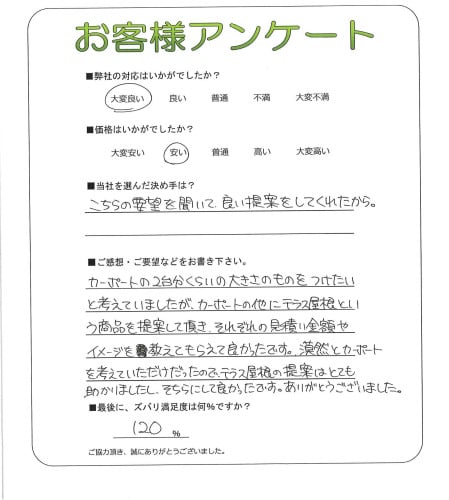 お客様アンケート
■弊社の対応はいかがでしたか？
大変良い 良い 普通 不満 大変不満
■価格はいかがでしたか？
大変安い 安い 普通 高い 大変高い
■当社を選んだ決め手は？
こちらの要望を聞いて、良い提案をしてくれたから。
■ご感想・ご要望などをお書き下さい。
カーポートの2台分くらいの大きさのものをつけたい
と考えていましたが、カーポートの他にテラス屋根とい
う商品を提案して頂き、それぞれの見積り金額や
イメージを教えてもらえて良かったです。漠然とカーポート
を考えていただけだったので、テラス屋根の提案はとても
助かりましたし、そちらにして良かったです。ありがとうございました。
■最後に、ズバリ満足度は何％ですか？
120 ％
ご協力頂き、誠にありがとうございました。